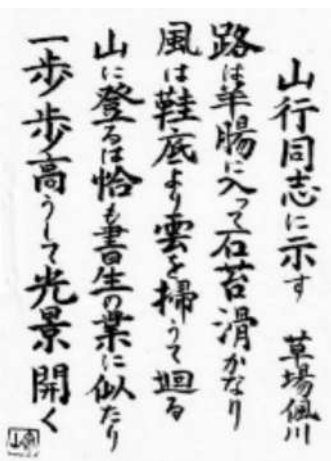 山行同志に示す 草場佩川
路は羊腸に入って石苔滑かなり
風は鞋底より雲を掃うて廻る
山に登るは恰も書生の業に似たり
一歩歩高うして光景開く